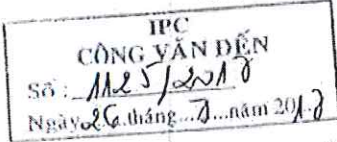 IPC
CÔNG VĂN ĐẾN
Số: 1125/2018
Ngày 26 tháng 7 năm 2018